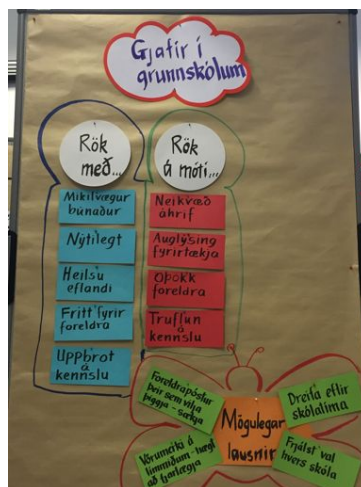 Gjafir í
grunnskólum
Rök
með...
Mikilvægur
búnaður
Nýtilegt
Heilsu
eflandi
Frítt fyrir
foreldra
Uppbrot á
kennslu
Rök
á móti...
Neikvæð
áhrif
Auglýsing
fyrirtækja
Óþokk
foreldra
Truflun
á
kennslu
Foreldrapóstur
Þeir sem vilja
þiggja - sækja
Dreifa eftir
skólatíma
Mögulegar
lausnir
Vörumerki á
límmiðum - hægt
að fjarlægja
Frjálst val
hvers skóla